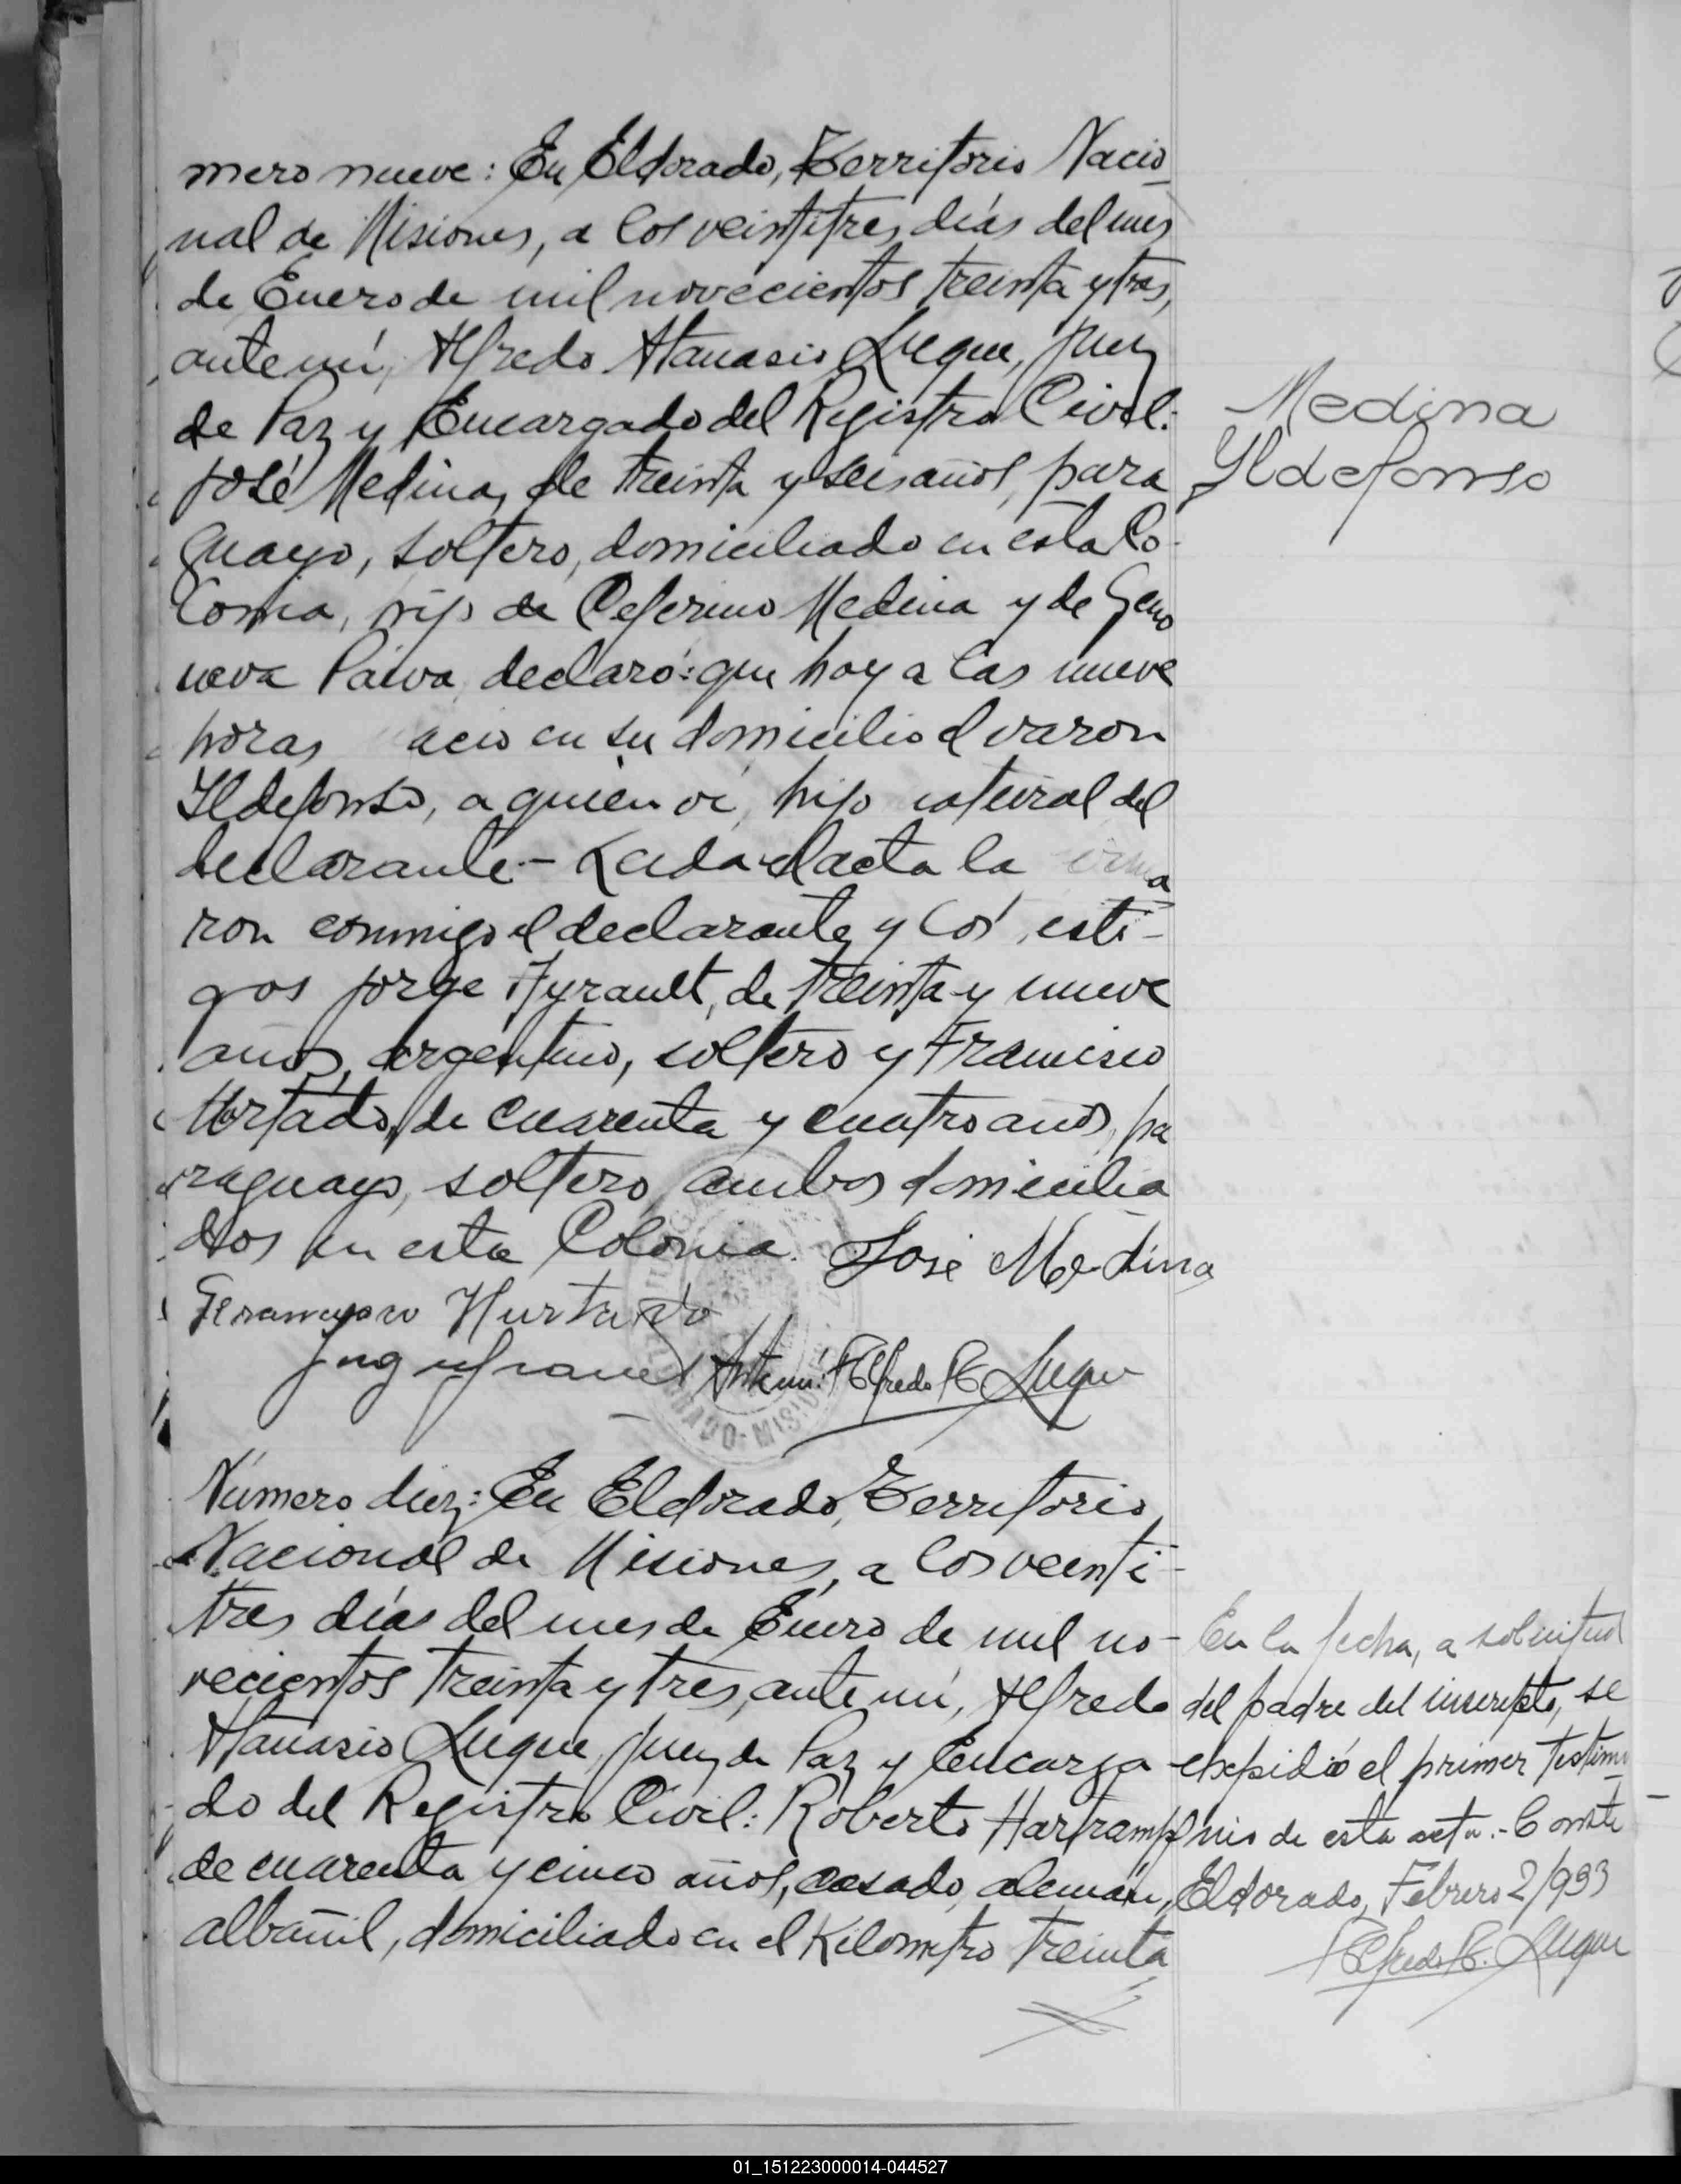 mero nueve: En Eldorado, Territorio Nacio
nal de Misiones, a los veintitres días del mes
de Enero de mil novecientos treinta y tres,
ante mí, Alfredo Atanasio Luque, Juez
de Paz y Encargado del Registro Civil:
José Medina, de treinta y seis años, para
guayo, soltero, domiciliado en esta Co-
lonia, hijo de Ceferino Medina y de Geno
veva Paiva, declaró: que hoy a las nueve
horas acio en su domicilio el varon
Ildefonso, a quien vi, hijo natural del
declarante.- Leida el acta la
ron conmigo el declarante y los esti-
gos Jorge Ayrault, de treinta y nueve
años, argentino, soltero y Francisco
Hurtado, de cuarenta y cuatro años, pa
raguayo, soltero, ambos domicilia
dos en esta Colonia. José Medina
Hurtado
Ante mí: Alfredo A. Luque
Medina
Yldefonso
Número diez: En Eldorado, Territorio
Nacional de Misiones, a los veinti-
tres días del mes de Enero de mil no-
vecientos treinta y tres, ante mí, Alfredo
Atanasio Luque, Juez de Paz y Encarga
do del Registro Civil: Roberto Hartrampf
de cuarenta y cinco años, casado, alemán,
albañil, domiciliado en el Kilometro treinta
En la fecha, a solicitud
del padre del inscripto, se
expidió el primer testimo
nio de esta acta.- Conste
Eldorado, Febrero 2/933
Alfredo A. Luque
01_151223000014-044527